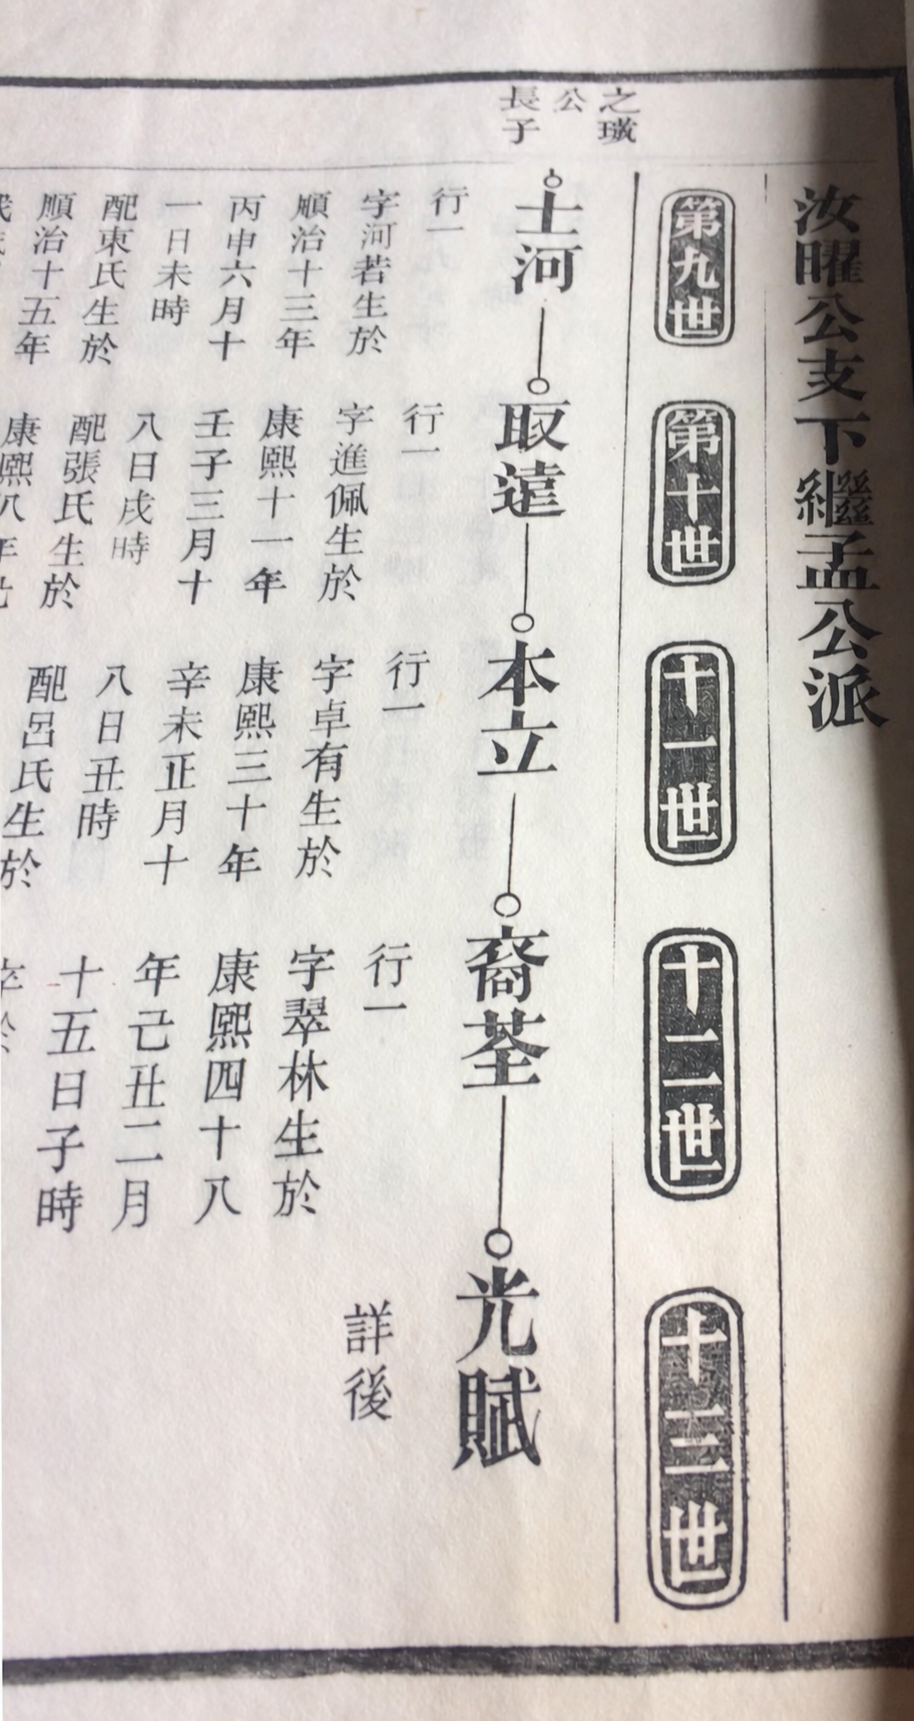 汝曜公支下繼孟公派
第九世
第十世
十一世
十二世
十三世
之璜
公
長子
士河
行一
字河若生於
順治十三年
丙申六月十
一日未時
配東氏生於
順治十五年
取達
行一
字進佩生於
康熙十一年
壬子三月十
八日戌時
配張氏生於
康熙八年
本立
行一
字卓有生於
康熙三十年
辛未正月十
八日丑時
配呂氏生於
裔荃
行一
字翠林生於
康熙四十八
年己丑二月
十五日子時
光賦
詳後